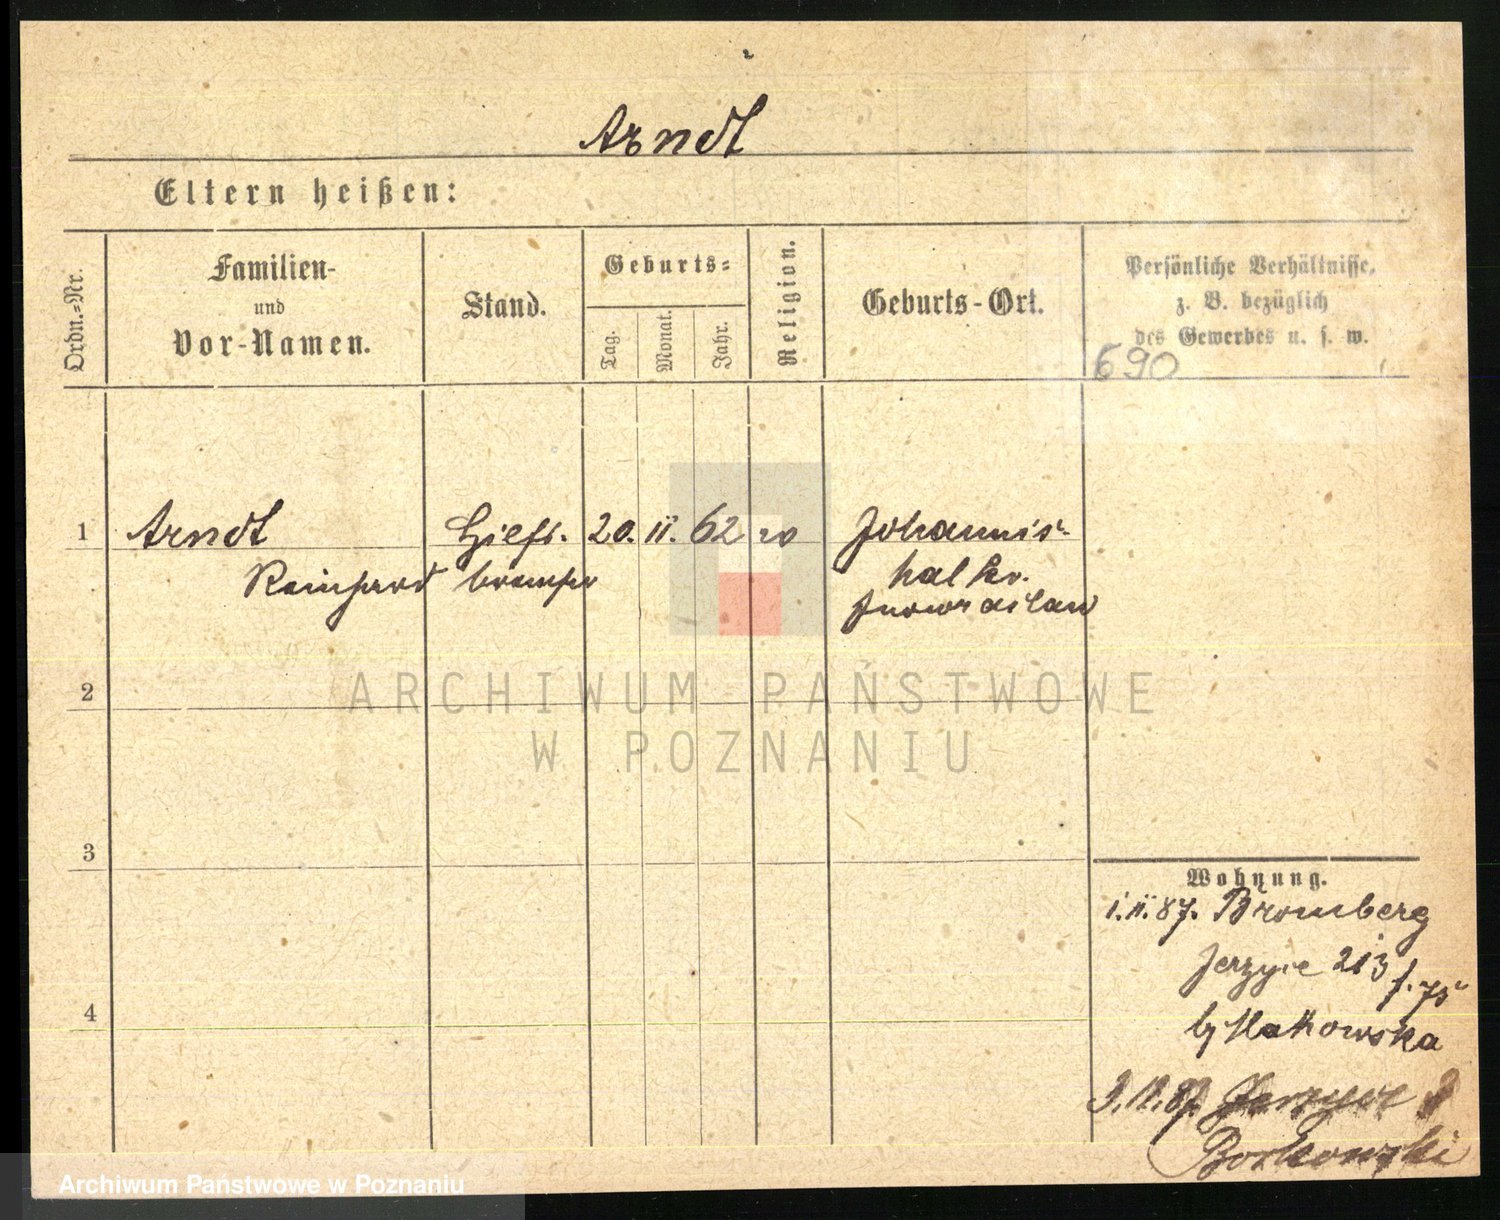 Arndt
Eltern heißen:
Ordn.-Nr.
Familien-
und
Vor-Namen.
Stand.
Geburts-
Tag.
Monat.
Jahr.
Religion.
Geburts-Ort.
Persönliche Verhältnisse,
z. B. bezüglich
des Gewerbes u. s. w.
690
1
Arndt
Reinhard
Hilfs-
bremser
20. 11. 62
Johannis-
thal Kr.
Inowrazlaw
2
ARCHIWUM PAŃSTWOWE
W POZNANIU
3
Wohnung.
1. 11. 87. Bromberg
Jerzyce 213
b/ Makowska
4
3. 12. 87. Jerzyce
Borkowski
Archiwum Państwowe w Poznaniu